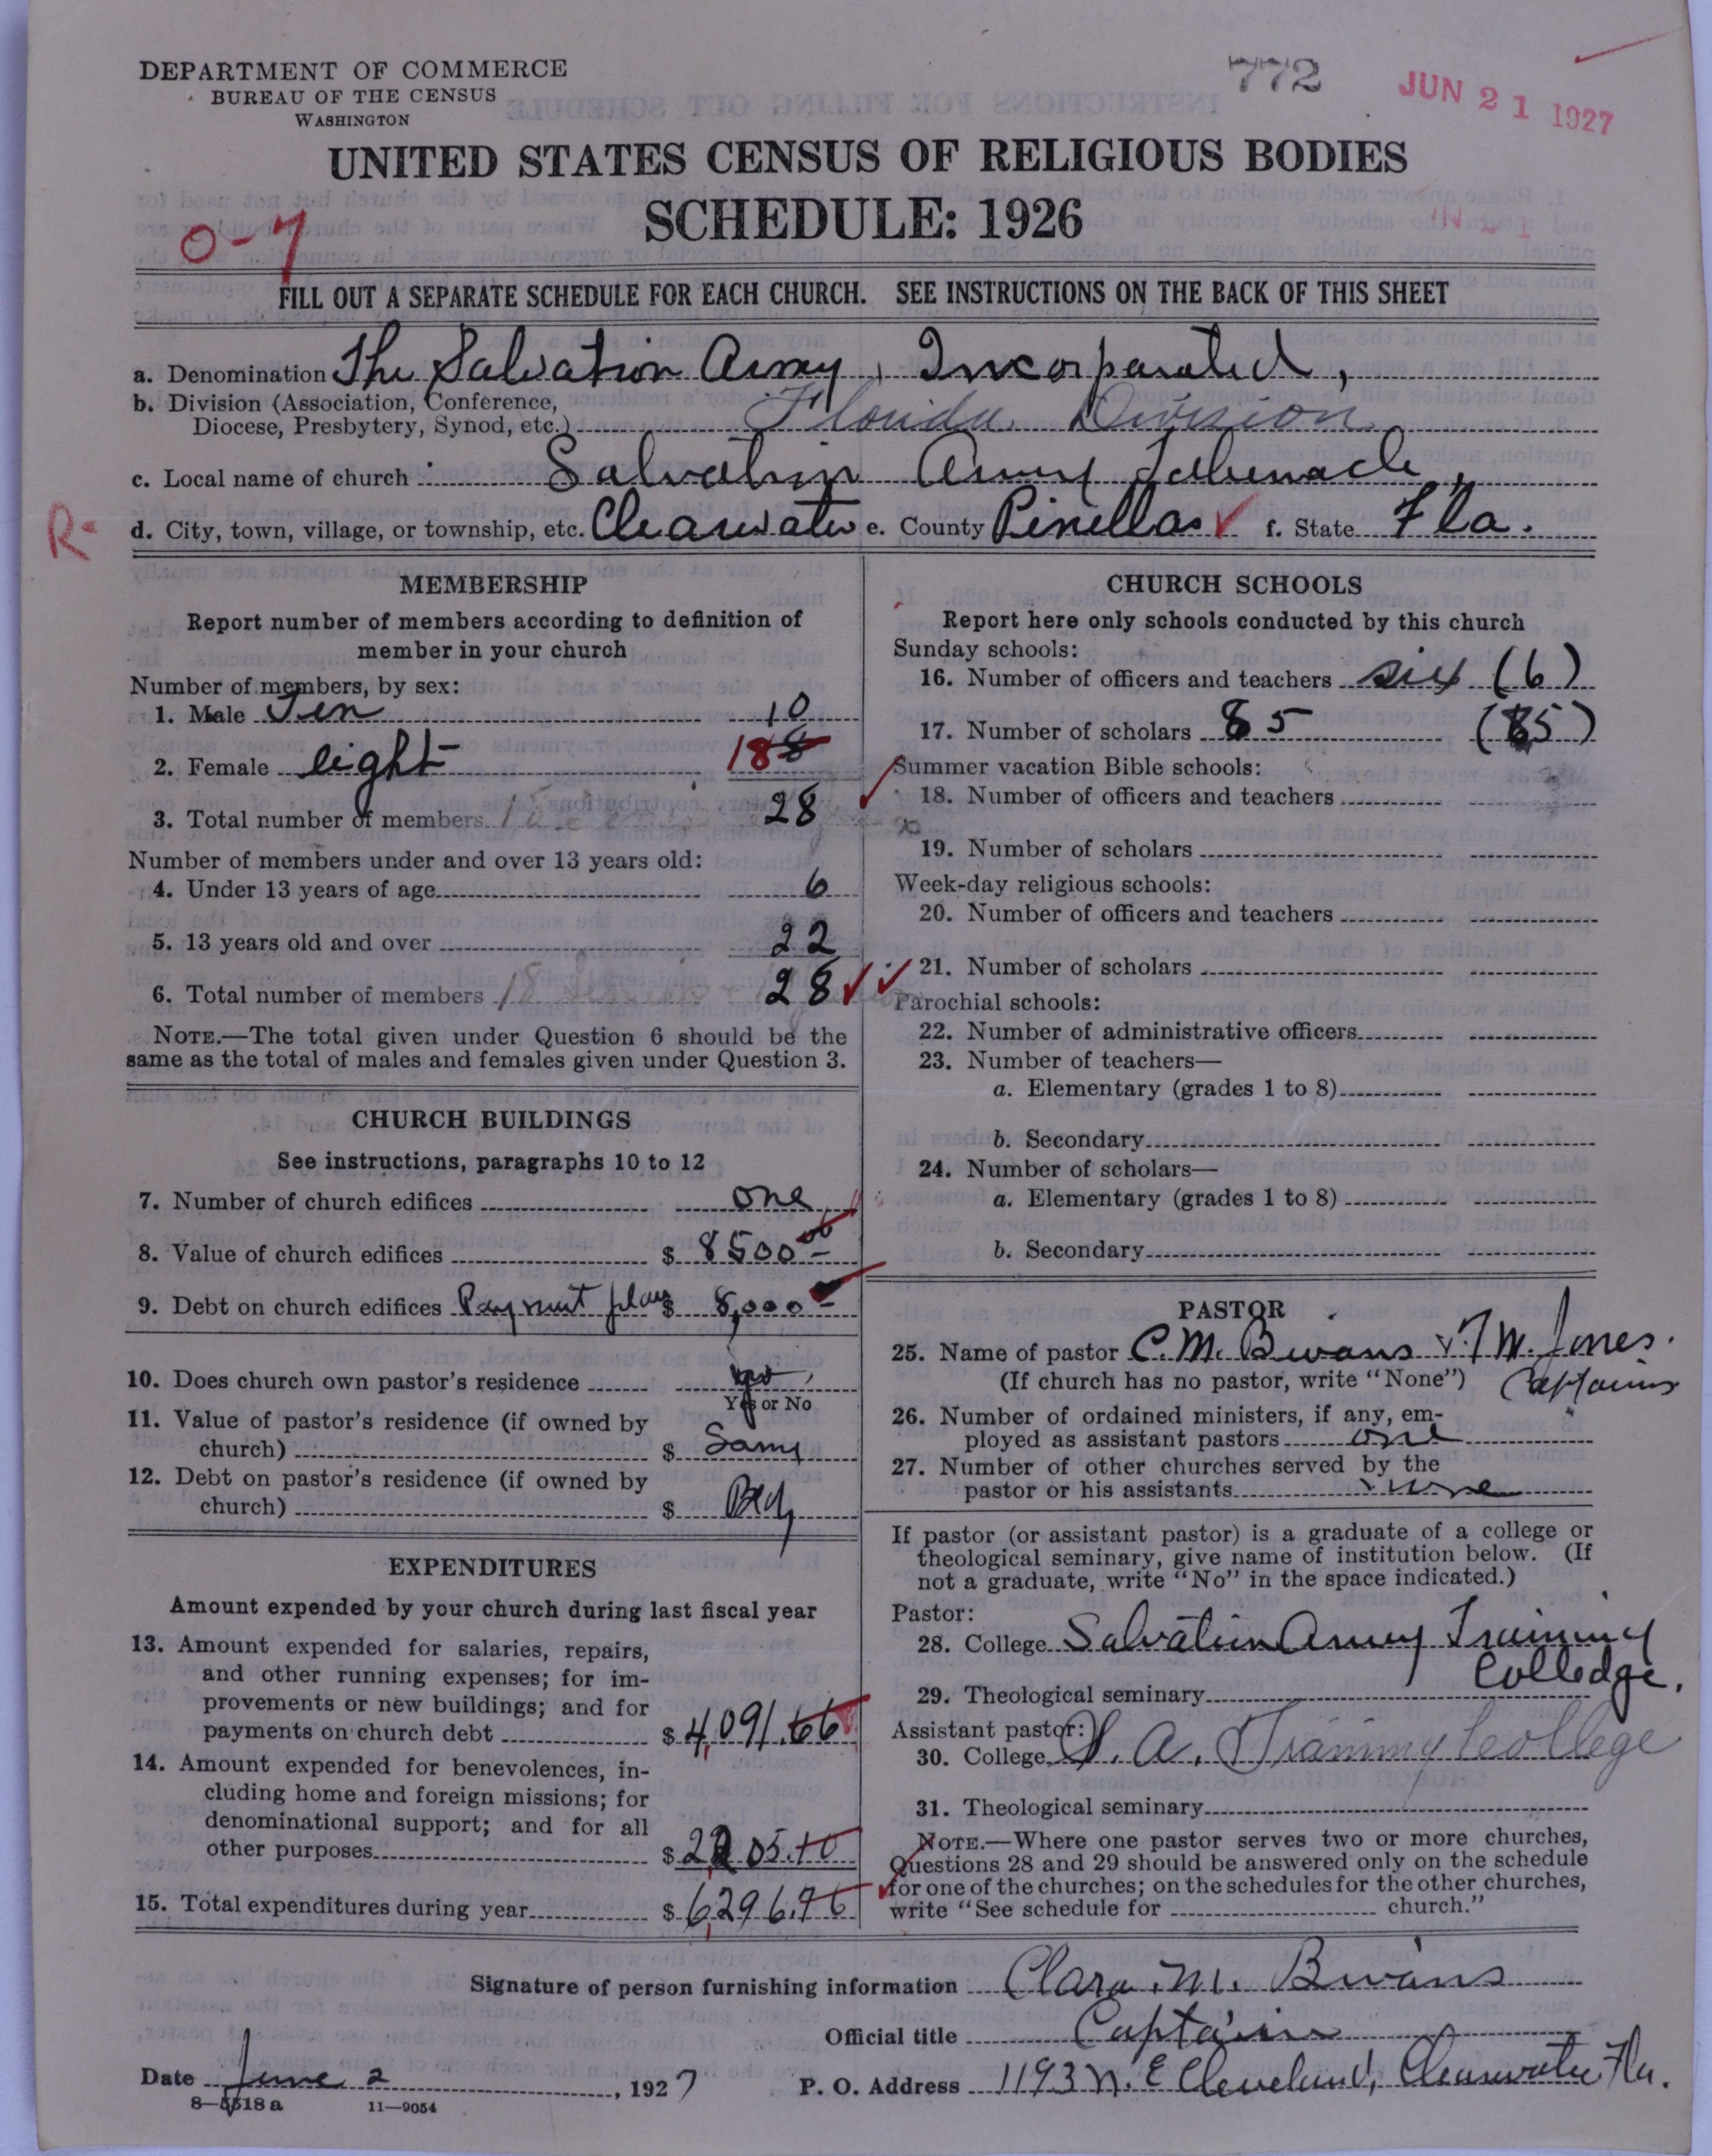 DEPARTMENT OF COMMERCE
BUREAU OF THE CENSUS
WASHINGTON
772
JUN 21 1927
UNITED STATES CENSUS OF RELIGIOUS BODIES
SCHEDULE: 1926
O-7
FILL OUT A SEPARATE SCHEDULE FOR EACH CHURCH. SEE INSTRUCTIONS ON THE BACK OF THIS SHEET
a. Denomination The Salvation Army, Incorporated,
b. Division (Association, Conference,
Diocese, Presbytery, Synod, etc.) Florida Division
c. Local name of church Salvation Army Tabernacle,
R- d. City, town, village, or township, etc. Clearwater e. County Pinellas f. State Fla.
MEMBERSHIP
Report number of members according to definition of
member in your church
Number of members, by sex:
1. Male Ten 10
2. Female eight 18 8
3. Total number of members 28
Number of members under and over 13 years old:
4. Under 13 years of age 6
5. 13 years old and over 22
6. Total number of members 18 28
NOTE.—The total given under Question 6 should be the
same as the total of males and females given under Question 3.
CHURCH BUILDINGS
See instructions, paragraphs 10 to 12
7. Number of church edifices one
8. Value of church edifices $ 8500 00
9. Debt on church edifices Payment plan $ 8,000
10. Does church own pastor's residence
Yes or No
11. Value of pastor's residence (if owned by
church) $ Same
12. Debt on pastor's residence (if owned by
church) $
EXPENDITURES
Amount expended by your church during last fiscal year
13. Amount expended for salaries, repairs,
and other running expenses; for im-
provements or new buildings; and for
payments on church debt $ 4,091.66
14. Amount expended for benevolences, in-
cluding home and foreign missions; for
denominational support; and for all
other purposes $ 2,205.10
15. Total expenditures during year $ 6,296.76
CHURCH SCHOOLS
Report here only schools conducted by this church
Sunday schools:
16. Number of officers and teachers six (6)
17. Number of scholars 85 (85)
Summer vacation Bible schools:
18. Number of officers and teachers
19. Number of scholars
Week-day religious schools:
20. Number of officers and teachers
21. Number of scholars
Parochial schools:
22. Number of administrative officers
23. Number of teachers—
a. Elementary (grades 1 to 8)
b. Secondary
24. Number of scholars—
a. Elementary (grades 1 to 8)
b. Secondary
PASTOR
25. Name of pastor C. M. Bivans & F. W. Jones.
(If church has no pastor, write "None") Captains
26. Number of ordained ministers, if any, em-
ployed as assistant pastors one
27. Number of other churches served by the
pastor or his assistants none
If pastor (or assistant pastor) is a graduate of a college or
theological seminary, give name of institution below. (If
not a graduate, write "No" in the space indicated.)
Pastor:
28. College Salvation Army Training
Colledge.
29. Theological seminary
Assistant pastor:
30. College S. A. Training College
31. Theological seminary
NOTE.—Where one pastor serves two or more churches,
Questions 28 and 29 should be answered only on the schedule
for one of the churches; on the schedules for the other churches,
write "See schedule for church."
Signature of person furnishing information Clara. M. Bivans
Official title Captain
Date June 2, 1927 P. O. Address 1193 N. E Cleveland, Clearwater Fla.
8—5518 a 11—9054